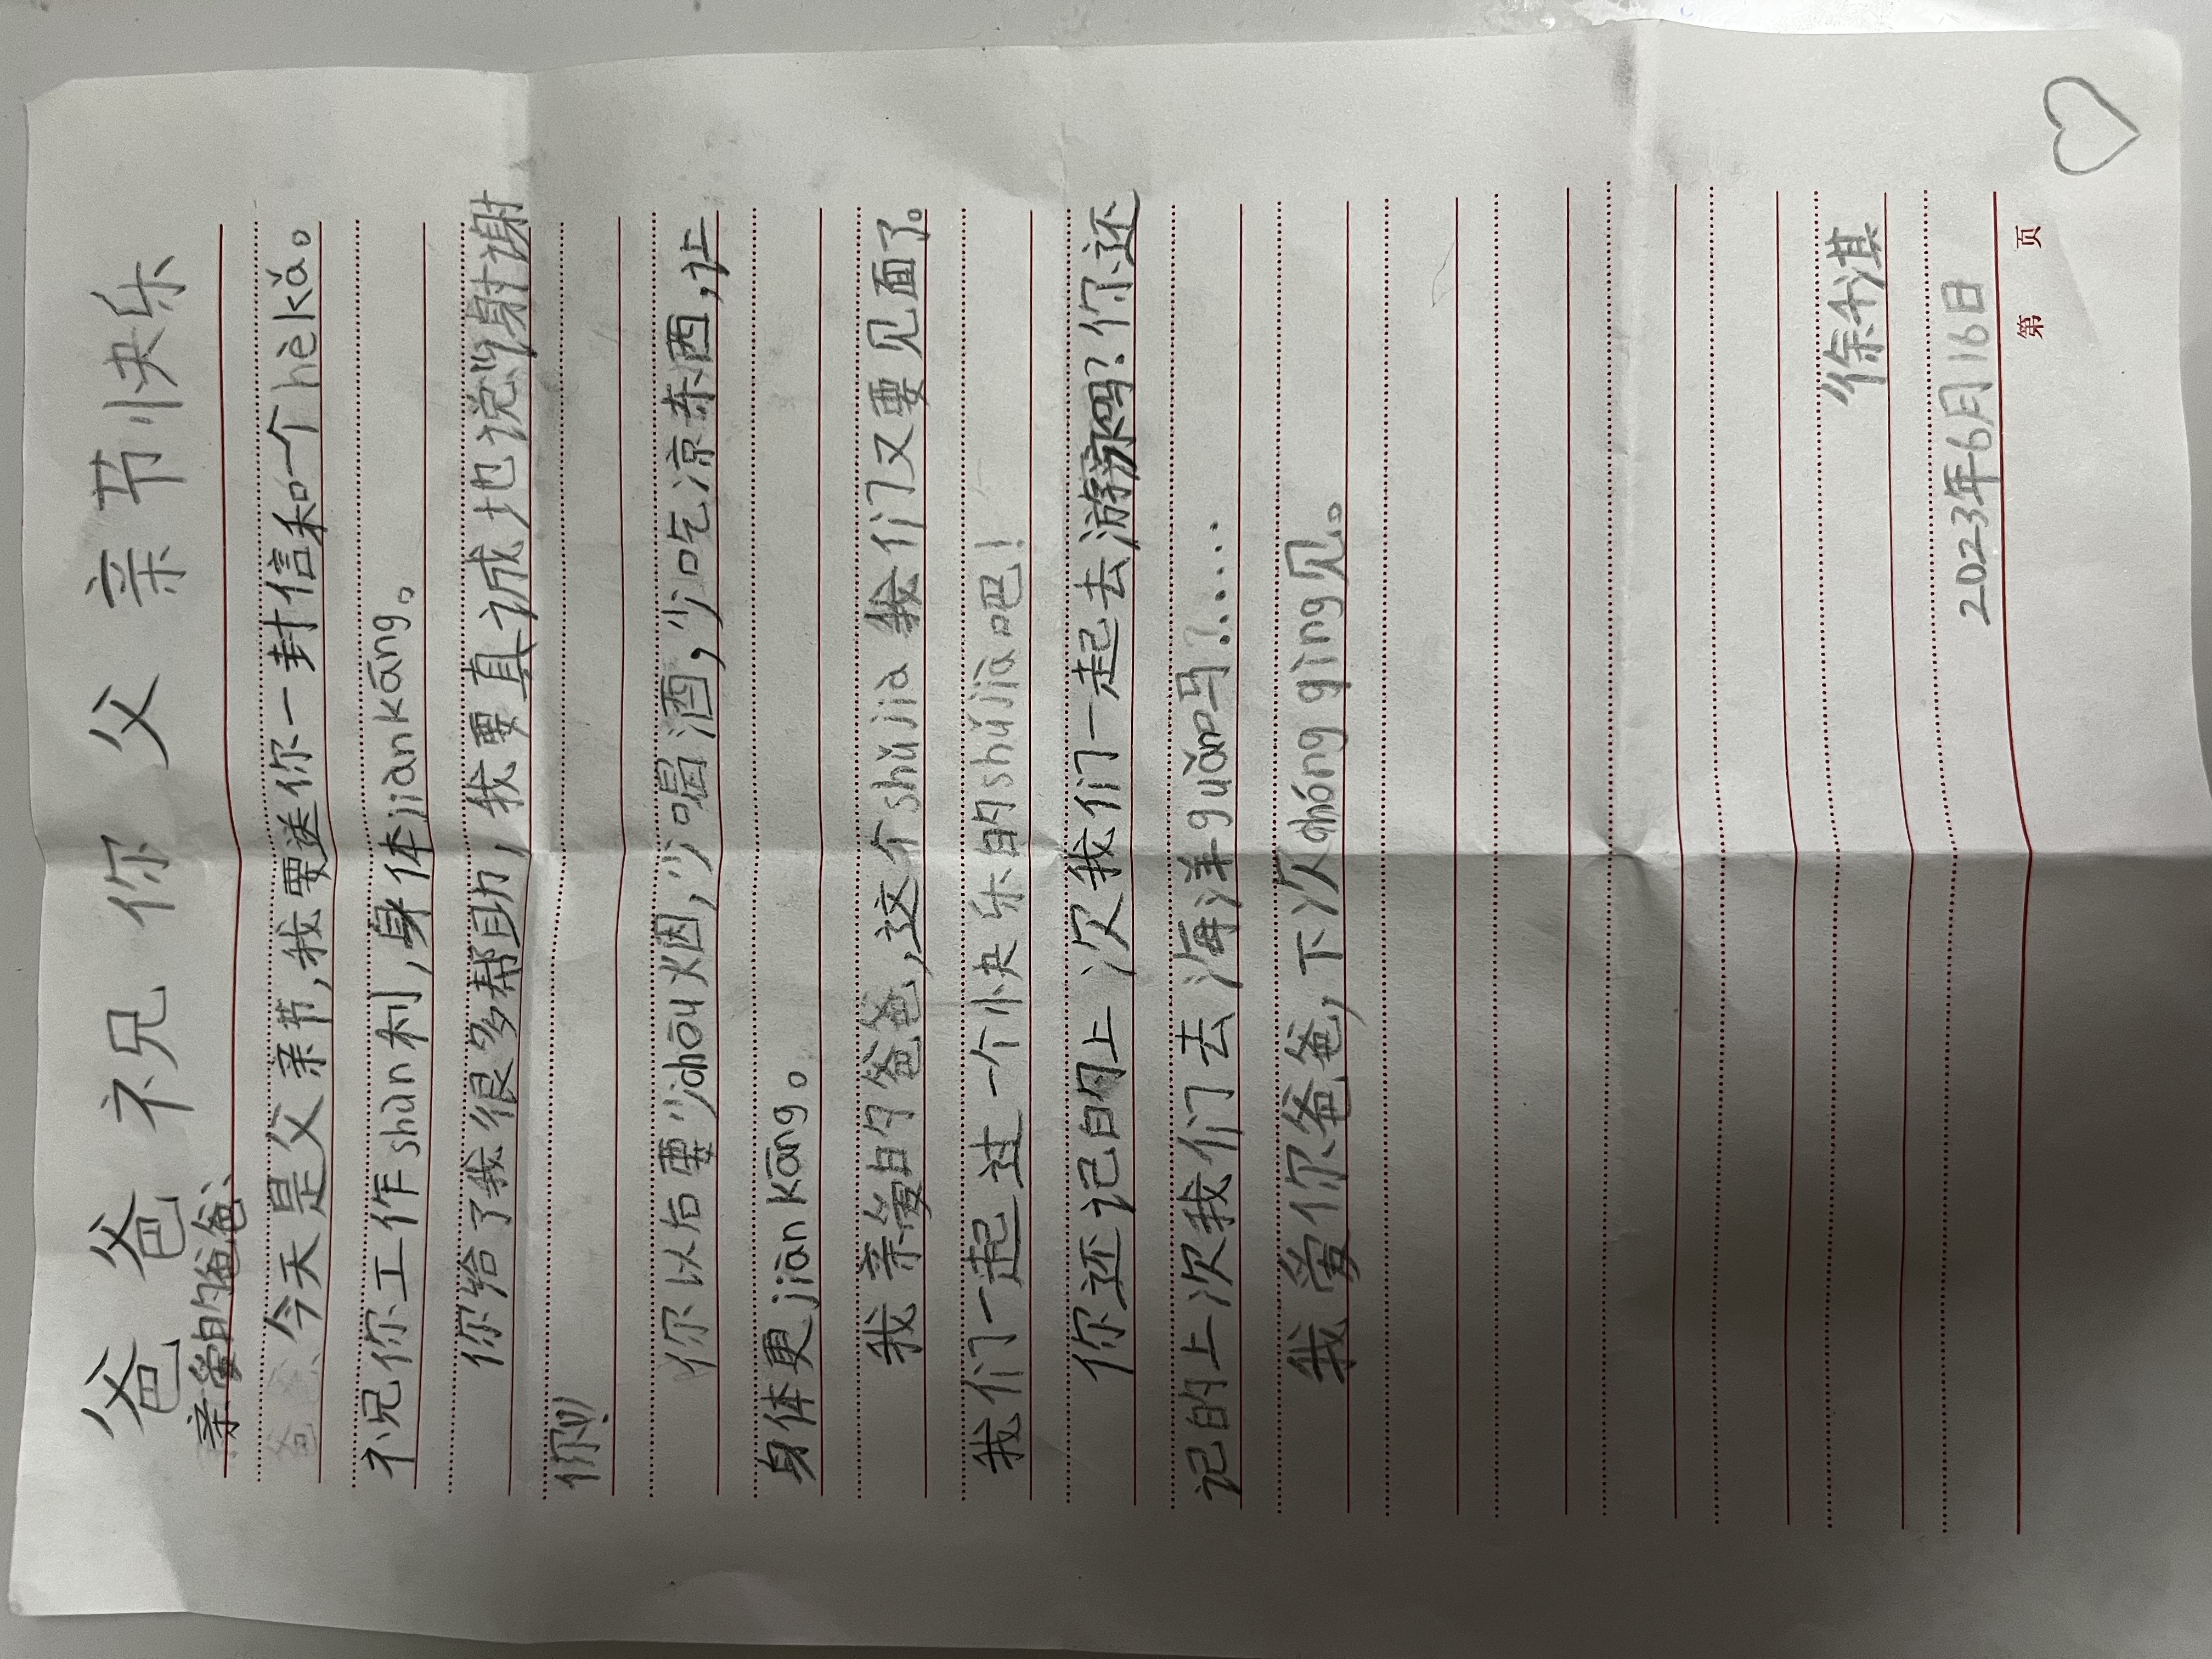 爸爸祝你父亲节快乐
亲爱的爸爸、
今天是父亲节,我要送你一封信和一个hèkǎ。
祝你工作shùn利,身体jiànkāng。
你给了我很多帮助,我要真诚地说谢谢
你!
你以后要少chōu烟,少喝酒,少吃凉东西,让
身体更jiànkāng。
我亲爱的爸爸,这个shǔjià我们又要见面了。
我们一起过一个快乐的shǔjià吧!
你还记的上次我们一起去游泳吗?你还
记的上次我们去海洋guǎn吗?.....
我爱你爸爸,下次chóng qìng见。
2023年6月16日
第 页